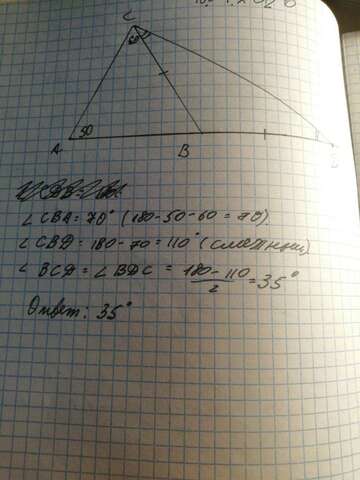 C
60
50
A
B
∠ CBA = 70° (180-50-60 = 70).
∠ CBD = 180-70 = 110° (смежные)
∠ BCD = ∠ BDC = (180-110)/2 = 35°
Ответ: 35°